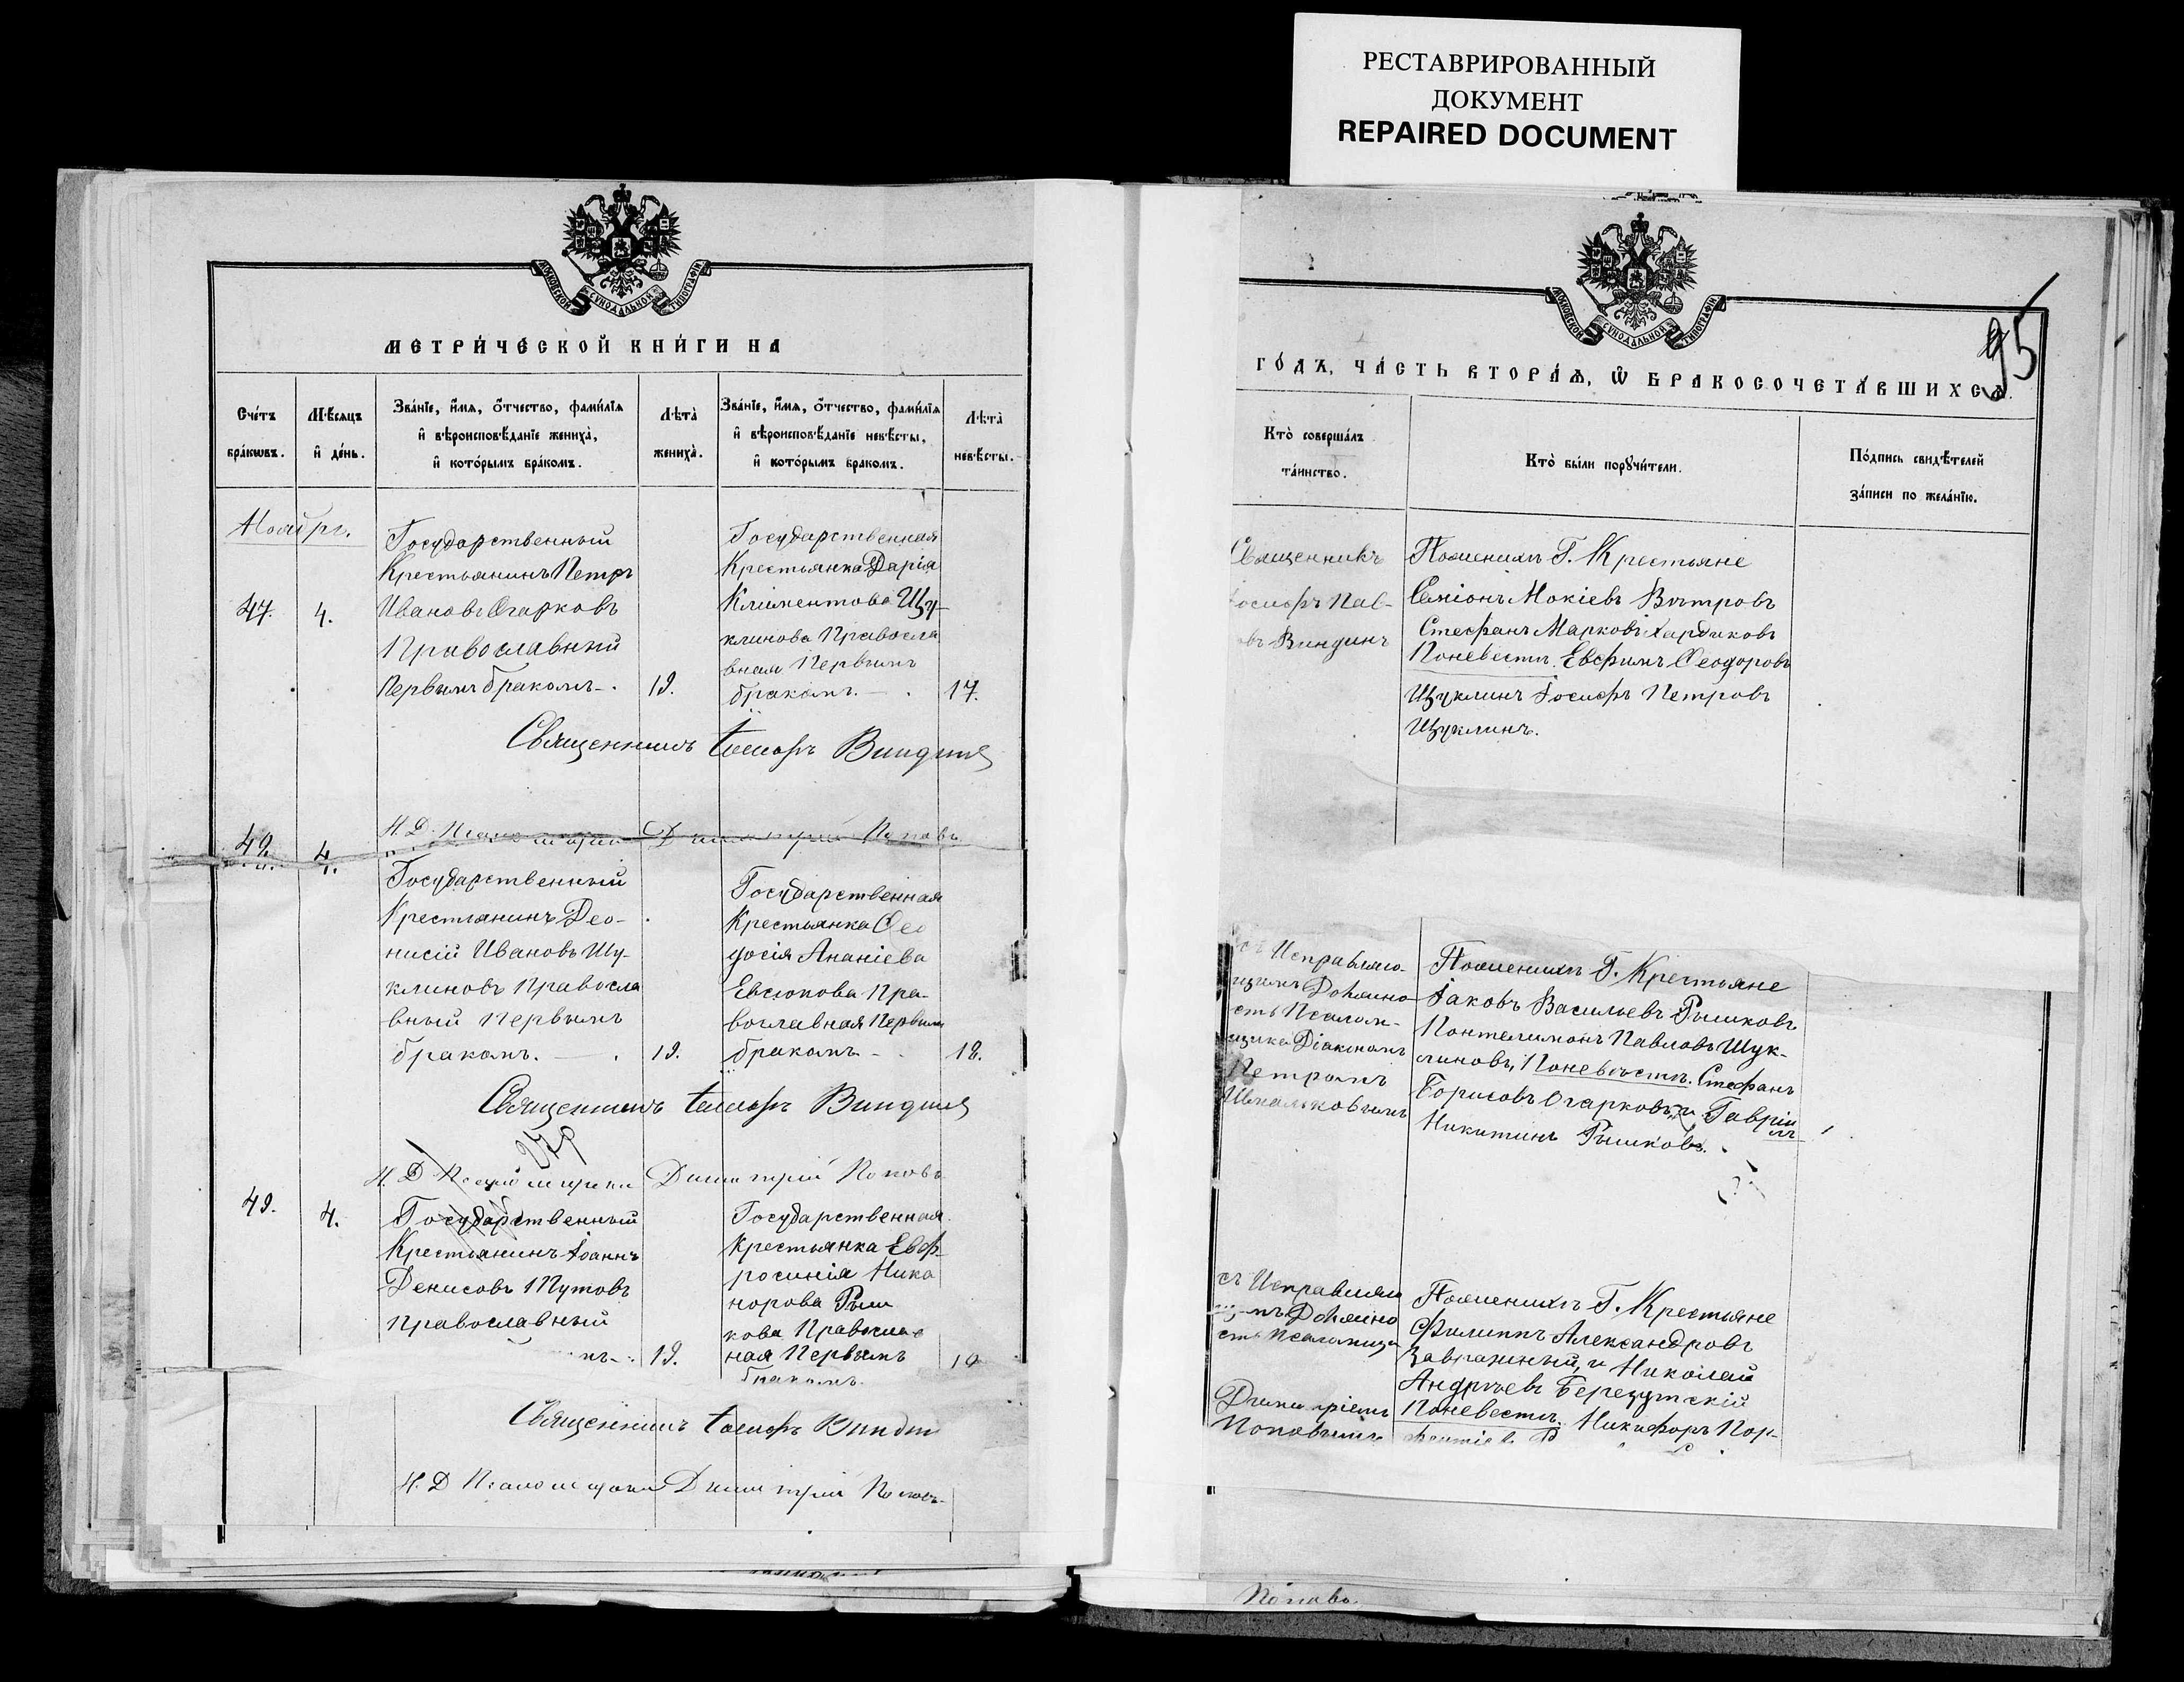 РЕСТАВРИРОВАННЫЙ
ДОКУМЕНТ
REPAIRED DOCUMENT
МОСКОВСКОЙ СУНОДАЛЬНОЙ ТИПОГРАФІИ
МЕТРИ́ЧЕСКОЙ КНИ́ГИ НА
Сче́тъ бра́кѡвъ.
Мѣ́сяцъ и҆ де́нь.
Зва́нїе, и҆́мѧ, ѻ҆́тчество, фами́лїѧ
и҆ вѣроисповѣ́данїе жениха̀,
и҆ кото́рымъ бра́комъ.
Лѣта̀ жениха̀.
Зва́нїе, и҆́мѧ, ѻ҆́тчество, фами́лїѧ
и҆ вѣроисповѣ́данїе невѣ́сты,
и҆ кото́рымъ бракомъ.
Лѣта̀ невѣ́сты.
Ноябрь.
47. 4.
Государственный
Крестьянинъ Петръ
Ивановъ Огарковъ
Православный
Первымъ бракомъ. 19.
Государственная
Крестьянка Дарія
Климентова Щу-
клинова Правосла
вная Первымъ
бракомъ. 17.
Священникъ Іосифъ Виндинъ
И. Д. Псаломщика Димитрій Поповъ
48. 4.
Государственный
Крестьянинъ Део-
нисій Ивановъ Шу-
клиновъ Правосла
вный Первымъ
бракомъ. 19.
Государственная
Крестьянка Ѳео
досія Ананіева
Евсюкова Пра-
вославная Первым
бракомъ 18.
Священникъ Іосифъ Виндинъ
И. Д. Псаломщика Димитрій Поповъ
49. 4.
Государственный
Крестьянинъ Іоаннъ
Денисовъ Шутовъ
Православный
мъ 19.
Государственная
Крестьянка Евф-
росинія Ника
норова Рыш
кова Правосла
ная Первымъ
бракомъ.
Священникъ Іосифъ Винди
И. Д. Псаломщика Димитрій Поповъ
МОСКОВСКОЙ СУНОДАЛЬНОЙ ТИПОГРАФІИ
95
ГО́ДЪ, ЧА́СТЬ ВТОРА́Ѧ, Ѡ҆ БРАКОСОЧЕТА́ВШИХСѦ.
Кто̀ соверша́лъ
та́инство.
Кто̀ бы́ли порꙋчи́тели.
По́дпись свидѣ́телей
за́писи по жела́нїю.
Священникъ
Іосифъ Пав-
овъ Виндинъ
По женихѣ Г. Крестьяне
Симіонъ Мокіевъ Вѣтровъ
Стефанъ Марковъ Хардиковъ
По невесты. Евфимъ Ѳеодоровъ
Щуклинъ Іосифъ Петровъ
Щуклинъ.
съ Исправляю-
щимъ Должно
сть Псалом-
щика Діакономъ
Петромъ
По женихѣ Г. Крестьяне
Іаковъ Васильевъ Рышковъ
Понтелимонъ Павловъ Шук-
линовъ, По невѣстѣ. Стефанъ
Борисовъ Огарковъ, и Гавріи
лъ
Никитинъ Рышковъ.
съ Исправляю
щимъ Должно
сть Псаломщи
Димитріемъ
Поповымъ
По женихѣ Г. Крестьяне
Филиппъ Александровъ
Завражный, и Николай
Андреевъ Березутскій
По невестѣ. Никифоръ Пор-
Поповъ.